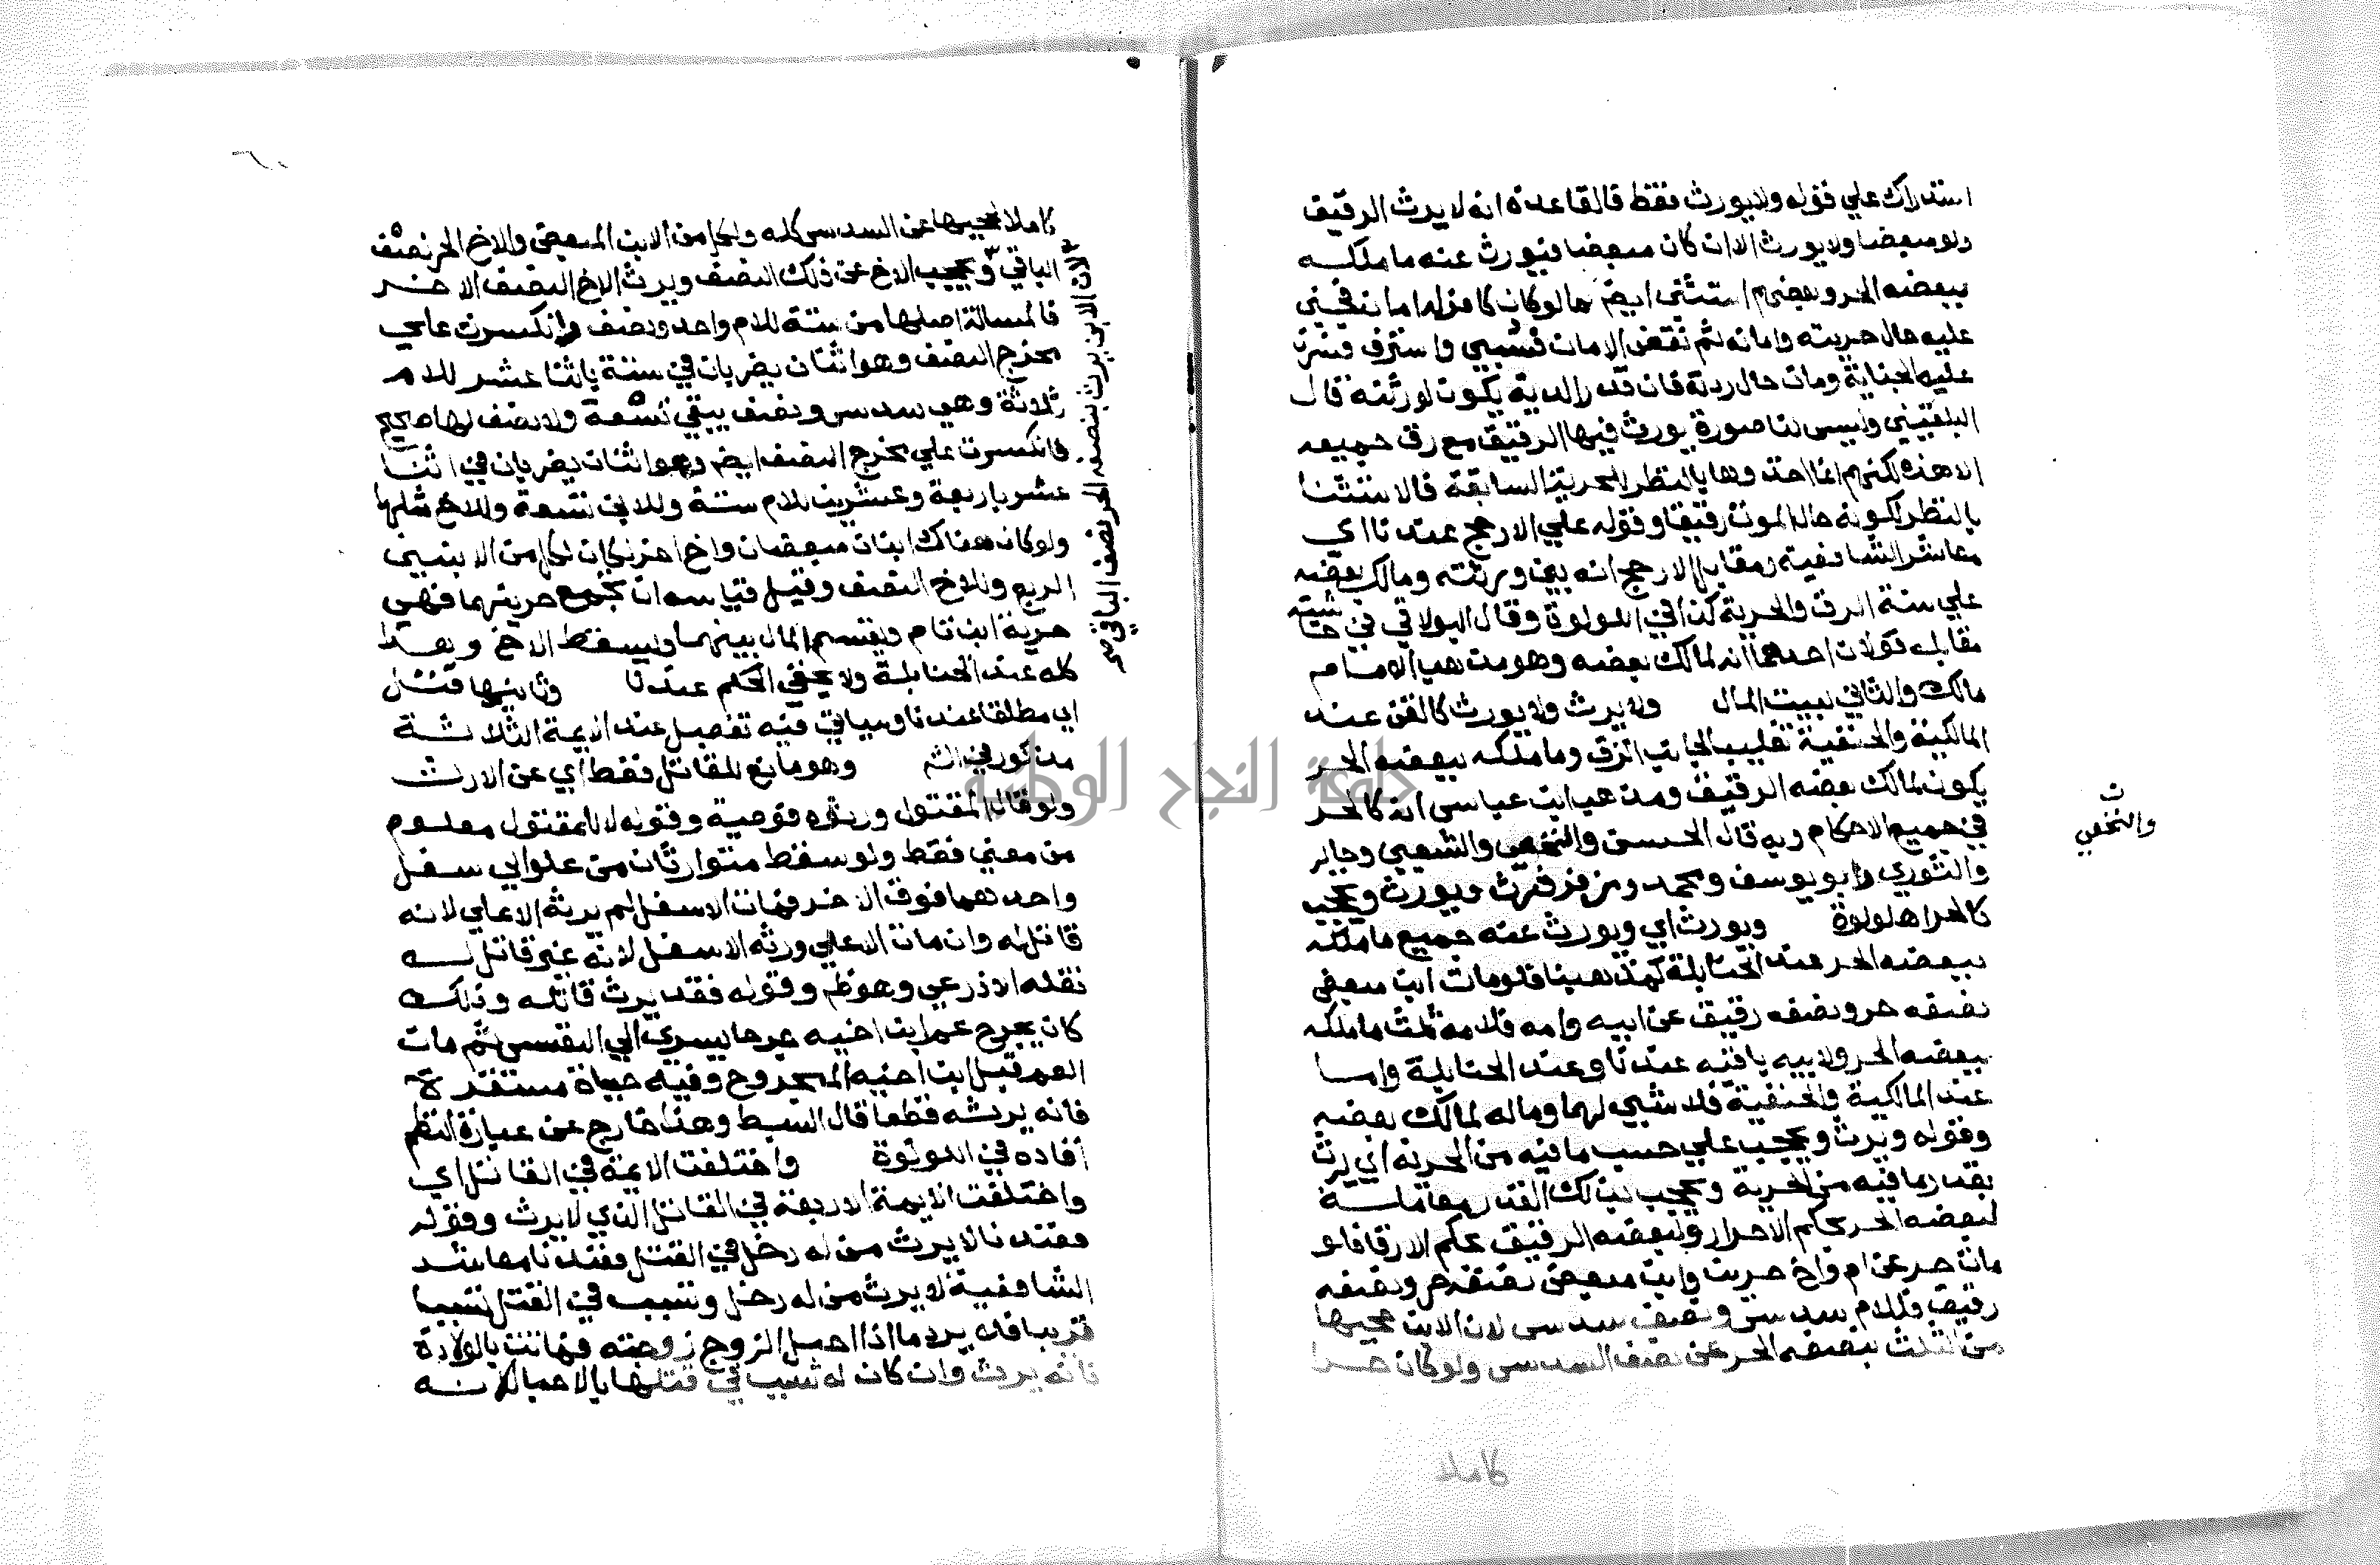 استدراك علي قوله ولا يورث فقط فالقاعدة انه لا يرث الرقيق
ولو مبعضا ولا يورث الا ان كان مبعضا فيورث عنه ما ملكه
ببعضه الحر وبعضهم استثني ايضم ما لو كان كافر له امان فجني
عليه حال حريته وامانه ثم نقض الامان فسبي واسترق فسرت
عليه الجناية ومات حال رقه فان قدر الدية يكون لورثته قال
البلقيني وليس لنا صورة يورث فيها الرقيق مع رق جميعه
الا هذه لكنهم انما اخذوها بالنظر للحرية السابقة فالاستثنا
بالنظر لكونه حال الموت رقيقا وقوله علي الارجح عندنا اي
معاشر الشافعية ومقابل الارجح انه بين ورثته ومالك بعضه
علي نسبة الرق والحرية كذا في اللولوة وقال البولاقي في حاشيته
مقابله قولان احدهما انه لمالك بعضه وهو مذهب الامام
مالك والثاني لبيت المال ولا يرث ولا يورث كالقن عند
المالكية والحنفية تغليب الجانب الرق وما ملكه ببعضه الحر
يكون لمالك بعضه الرقيق ومذهب ابن عباس انه كالحر
في جميع الاحكام وبه قال الحسن والنخعي والشعبي وجابر
والثوري وابو يوسف ومحمد وزفر فيرث ويورث ويحجب
كالحر اهـ لولوة ويورث اي ويورث عنه جميع ما ملكه
ببعضه الحر عند الحنابلة كمذهبنا فلو مات ابن مبعض
نصفه حر ونصفه رقيق عن ابيه وامه فلامه ثلث ما ملكه
ببعضه الحر ولابيه باقيه عندنا وعند الحنابلة واما
عند المالكية والحنفية فلا شي لهما وماله لمالك بعضه
وقوله ويرث ويحجب علي حسب ما فيه من الحرية اي يرث
بقدر ما فيه من الحرية ويحجب بذلك القدر معاملة
لبعضه الحر بحكم الاحرار ولبعضه الرقيق بحكم الارقا فلو
مات حر عن ام واخ حرين وابن مبعض نصفه حر ونصفه
رقيق فللام سدس ونصف سدس لان الابن يحجبها
من الثلث بنصفه الحر عن نصف السدس ولو كان حرا
ن
والنخعي
كاملا
كاملا لحجبها عن السدس كله ولكل من الابن المبعض والاخ الحر نصف
الباقي ويحجب الاخ عن ذلك النصف ويرث الاخ النصف الاخر
فالمسالة اصلها من ستة للام واحد ونصف وانكسرت علي
مخرج النصف وهو اثنان يضربان في ستة باثنا عشر للام
ثلاثة وهي سدس ونصف يبقي تسعة ولا نصف لها صحيح
فانكسرت علي مخرج النصف ايضم وهو اثنان يضربان في اثنا
عشر باربعة وعشرين للام ستة وللابن تسعة وللاخ مثلها
ولو كان هناك ابنان مبعضان واخ اخر لكان لكل من الابنين
الربع وللاخ النصف وقيل قياسه ان تجمع حريتهما فهي
حرية ابن تام ويقسم المال بينهما ويسقط الاخ وبعد
كله عند الحنابلة ولا يخفي الحكم عندنا وثانيها قتل
اي مطلقا عندنا وسياتي فيه تفصيل عند الايمة الثلاثة
مذكور في الشم وهو مانع للقاتل فقط اي عن الارث
ولو قال المقتول ورثوه فوصية وقوله لا للمقتول معلوم
من معني فقط ولو سقط متوارثان من علو الي سفل
واحدهما فوق الاخر فمات الاسفل لم يرثه الاعلي لانه
قاتل له وان مات الاعلي ورثه الاسفل لانه غير قاتل له
نقله الاذرعي وهو ظم وقوله فقد يرث قاتله وذلك
كان يجرح عم ابن اخيه جرحا يسري الي النفس ثم مات
العم قبل ابن اخيه المجروح وفيه حياة مستقرة
فانه يرثه قطعا قال السبط وهذا خارج عن عبارة النظم
افاده في اللولوة واختلفت الايمة في القاتل اي
واختلفت الايمة الاربعة في القاتل الذي لا يرث وقوله
فعندنا لا يرث من له دخل في القتل فعندنا معاشر
الشافعية لا يرث من له دخل وتسبب في القتل تسببا
قريبا فلا يرد ما اذا احبل الزوج زوجته فماتت بالولادة
فانه يرث وان كان له سبب في قتلها بالاحبال لانه
لان الابن يرث بنصفه الحر نصف الباقي صح
جامعة النجاح الوطنية